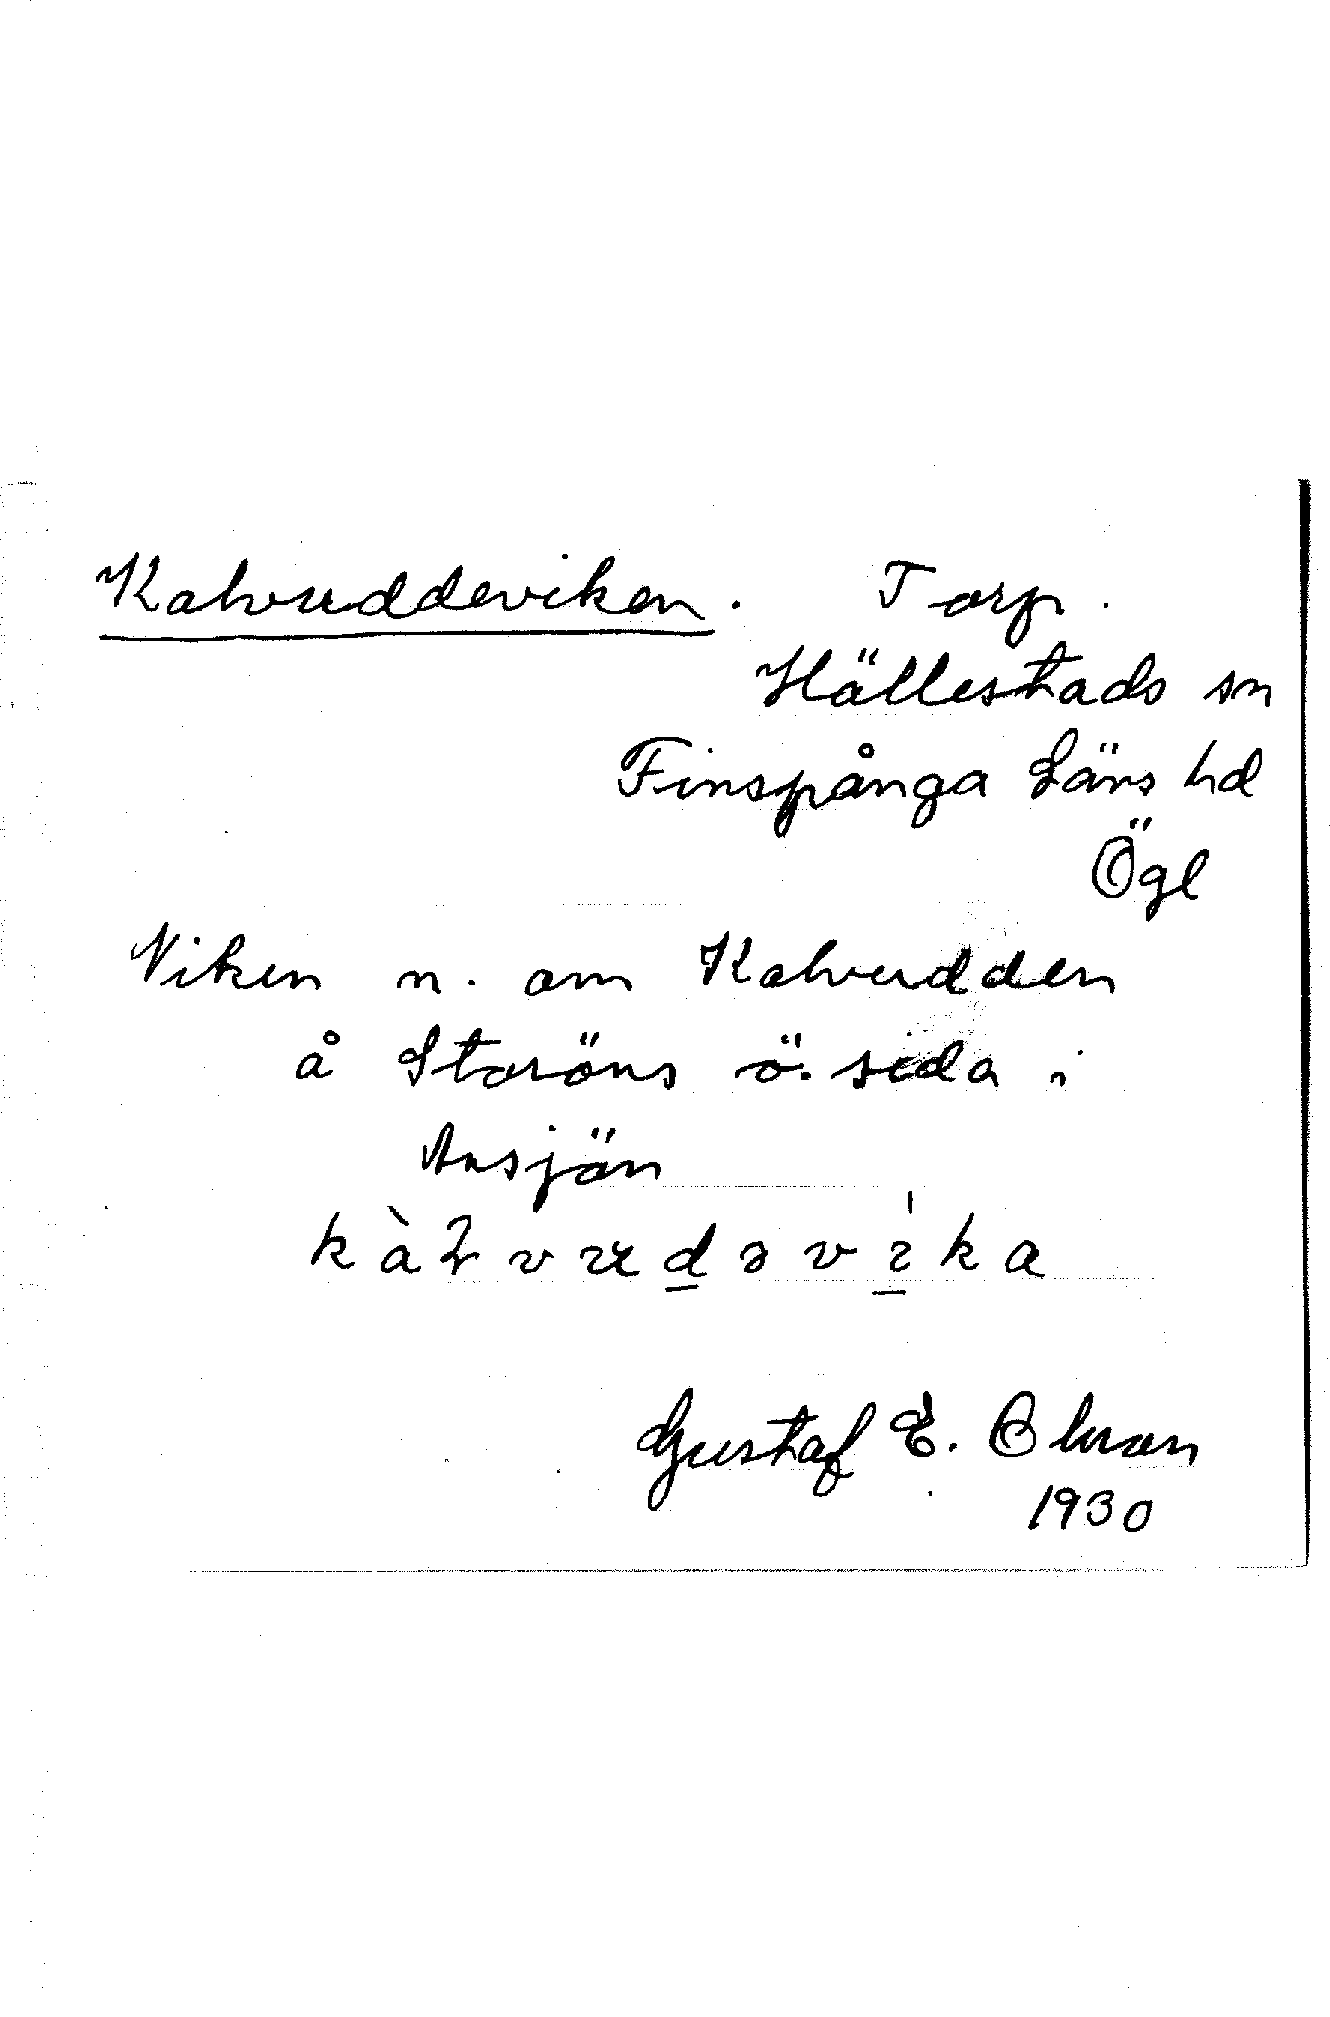 Kalvuddeviken. Torp.
Hällestads sn
Finspånga Läns hd
Ögl
Viken n. om Kalvudden
å Storöns ö. sida i
Ansjön
Gustaf E. Olsson
1930